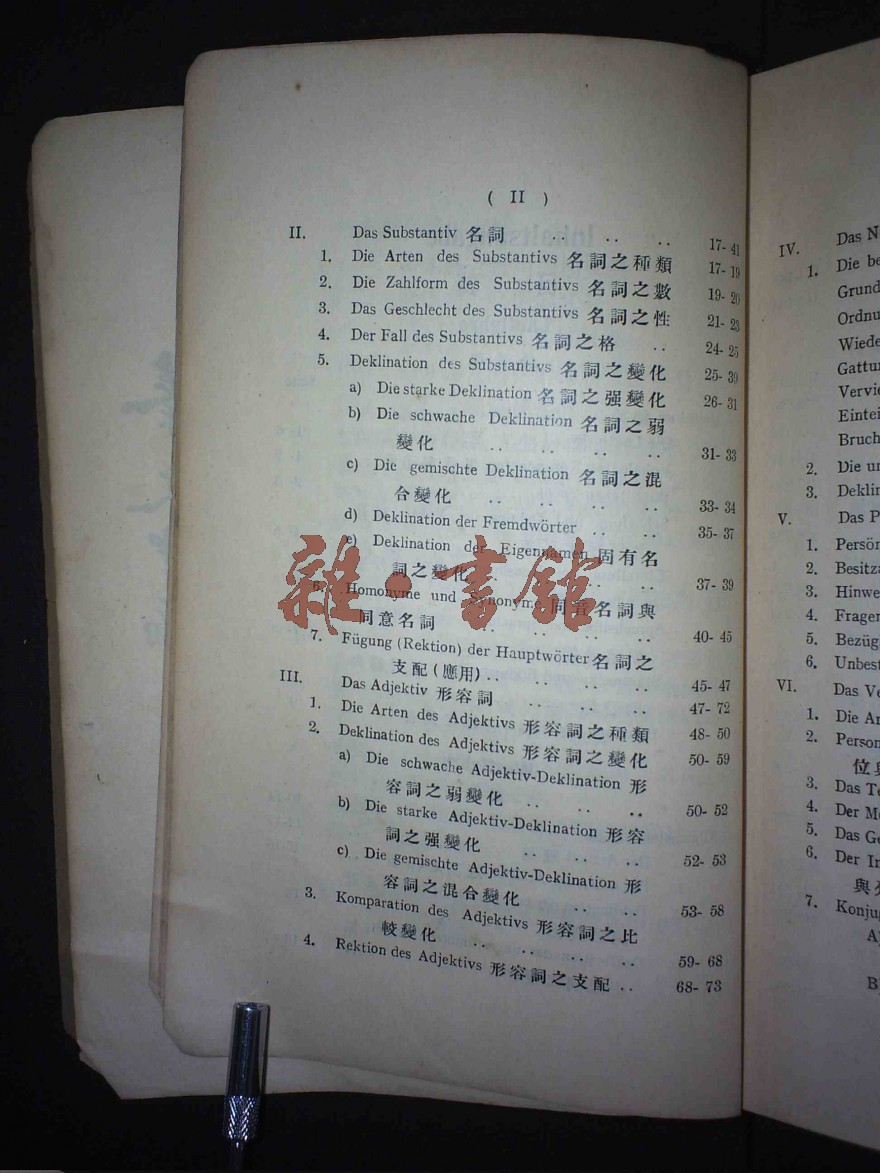 ( II )
II. Das Substantiv 名詞 .. .. .. 17- 41
1. Die Arten des Substantivs 名詞之種類 17- 19
2. Die Zahlform des Substantivs 名詞之數 19- 20
3. Das Geschlecht des Substantivs 名詞之性 21- 23
4. Der Fall des Substantivs 名詞之格 .. 24- 25
5. Deklination des Substantivs 名詞之變化 25- 39
a) Die starke Deklination 名詞之强變化 26- 31
b) Die schwache Deklination 名詞之弱
變化 .. .. .. .. 31- 33
c) Die gemischte Deklination 名詞之混
合變化 .. .. .. .. 33- 34
d) Deklination der Fremdwörter .. .. 35- 37
e) Deklination der Eigennamen 固有名
詞之變化 .. 37- 39
6. Homonyme und Synonyme 同音名詞與
同意名詞 .. .. .. .. .. 40- 45
7. Fügung (Rektion) der Hauptwörter 名詞之
支配 (應用) .. .. .. .. 45- 47
III. Das Adjektiv 形容詞 47- 72
1. Die Arten des Adjektivs 形容詞之種類 48- 50
2. Deklination des Adjektivs 形容詞之變化 50- 59
a) Die schwache Adjektiv-Deklination 形
容詞之弱變化 .. .. .. 50- 52
b) Die starke Adjektiv-Deklination 形容
詞之强變化 .. .. .. 52- 53
c) Die gemischte Adjektiv-Deklination 形
容詞之混合變化 .. .. 53- 58
3. Komparation des Adjektivs 形容詞之比
較變化 .. .. .. .. 59- 68
4. Rektion des Adjektivs 形容詞之支配 .. 68- 73
雜·書館
IV. Das N
1. Die be
Grund
Ordnu
Wiede
Gattu
Vervi
Eintei
Bruch
2. Die un
3. Deklin
V. Das P
1. Persön
2. Besitza
3. Hinwe
4. Frager
5. Bezüg
6. Unbest
VI. Das Ve
1. Die Ar
2. Person
位與
3. Das Te
4. Der Mo
5. Das Ge
6. Der In
與
7. Konjug
A)
B